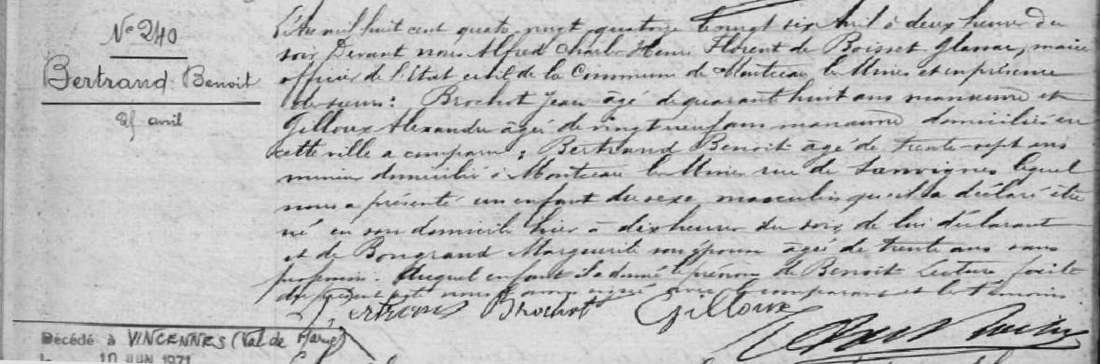 N° 240
Bertrand Benoit
25 avril
L'An mil huit cent quatre vingt quatorze le vingt six Avril à deux heures du
soir Devant nous Alfred Charles Henri Florent de Boisset Glassac, maire
officier de l'Etat civil de la Commune de Montceau les Mines et en présence
des sieurs : Brochot Jean âgé de quarante huit ans manœuvre et
Gilloux Alexandre âgé de vingt neuf ans manœuvre domiciliés en
cette ville a comparu ; Bertrand Benoit âgé de trente-sept ans
mineur domicilié à Montceau les Mines rue de Sanvignes lequel
nous a présenté un enfant du sexe masculin qu'il a déclaré être
né en son domicile hier à dix heures du soir de lui déclarant
et de Bongrand Marguerite son épouse âgée de trente ans sans
profession. Auquel enfant il a donné le prénom de Benoit Lecture faite
du présent acte nous l'avons signé avec le comparant et les témoins.
Bertrand Brochot Gilloux
Décédé à VINCENNES (Val de Marne)
le 10 JUIN 1971